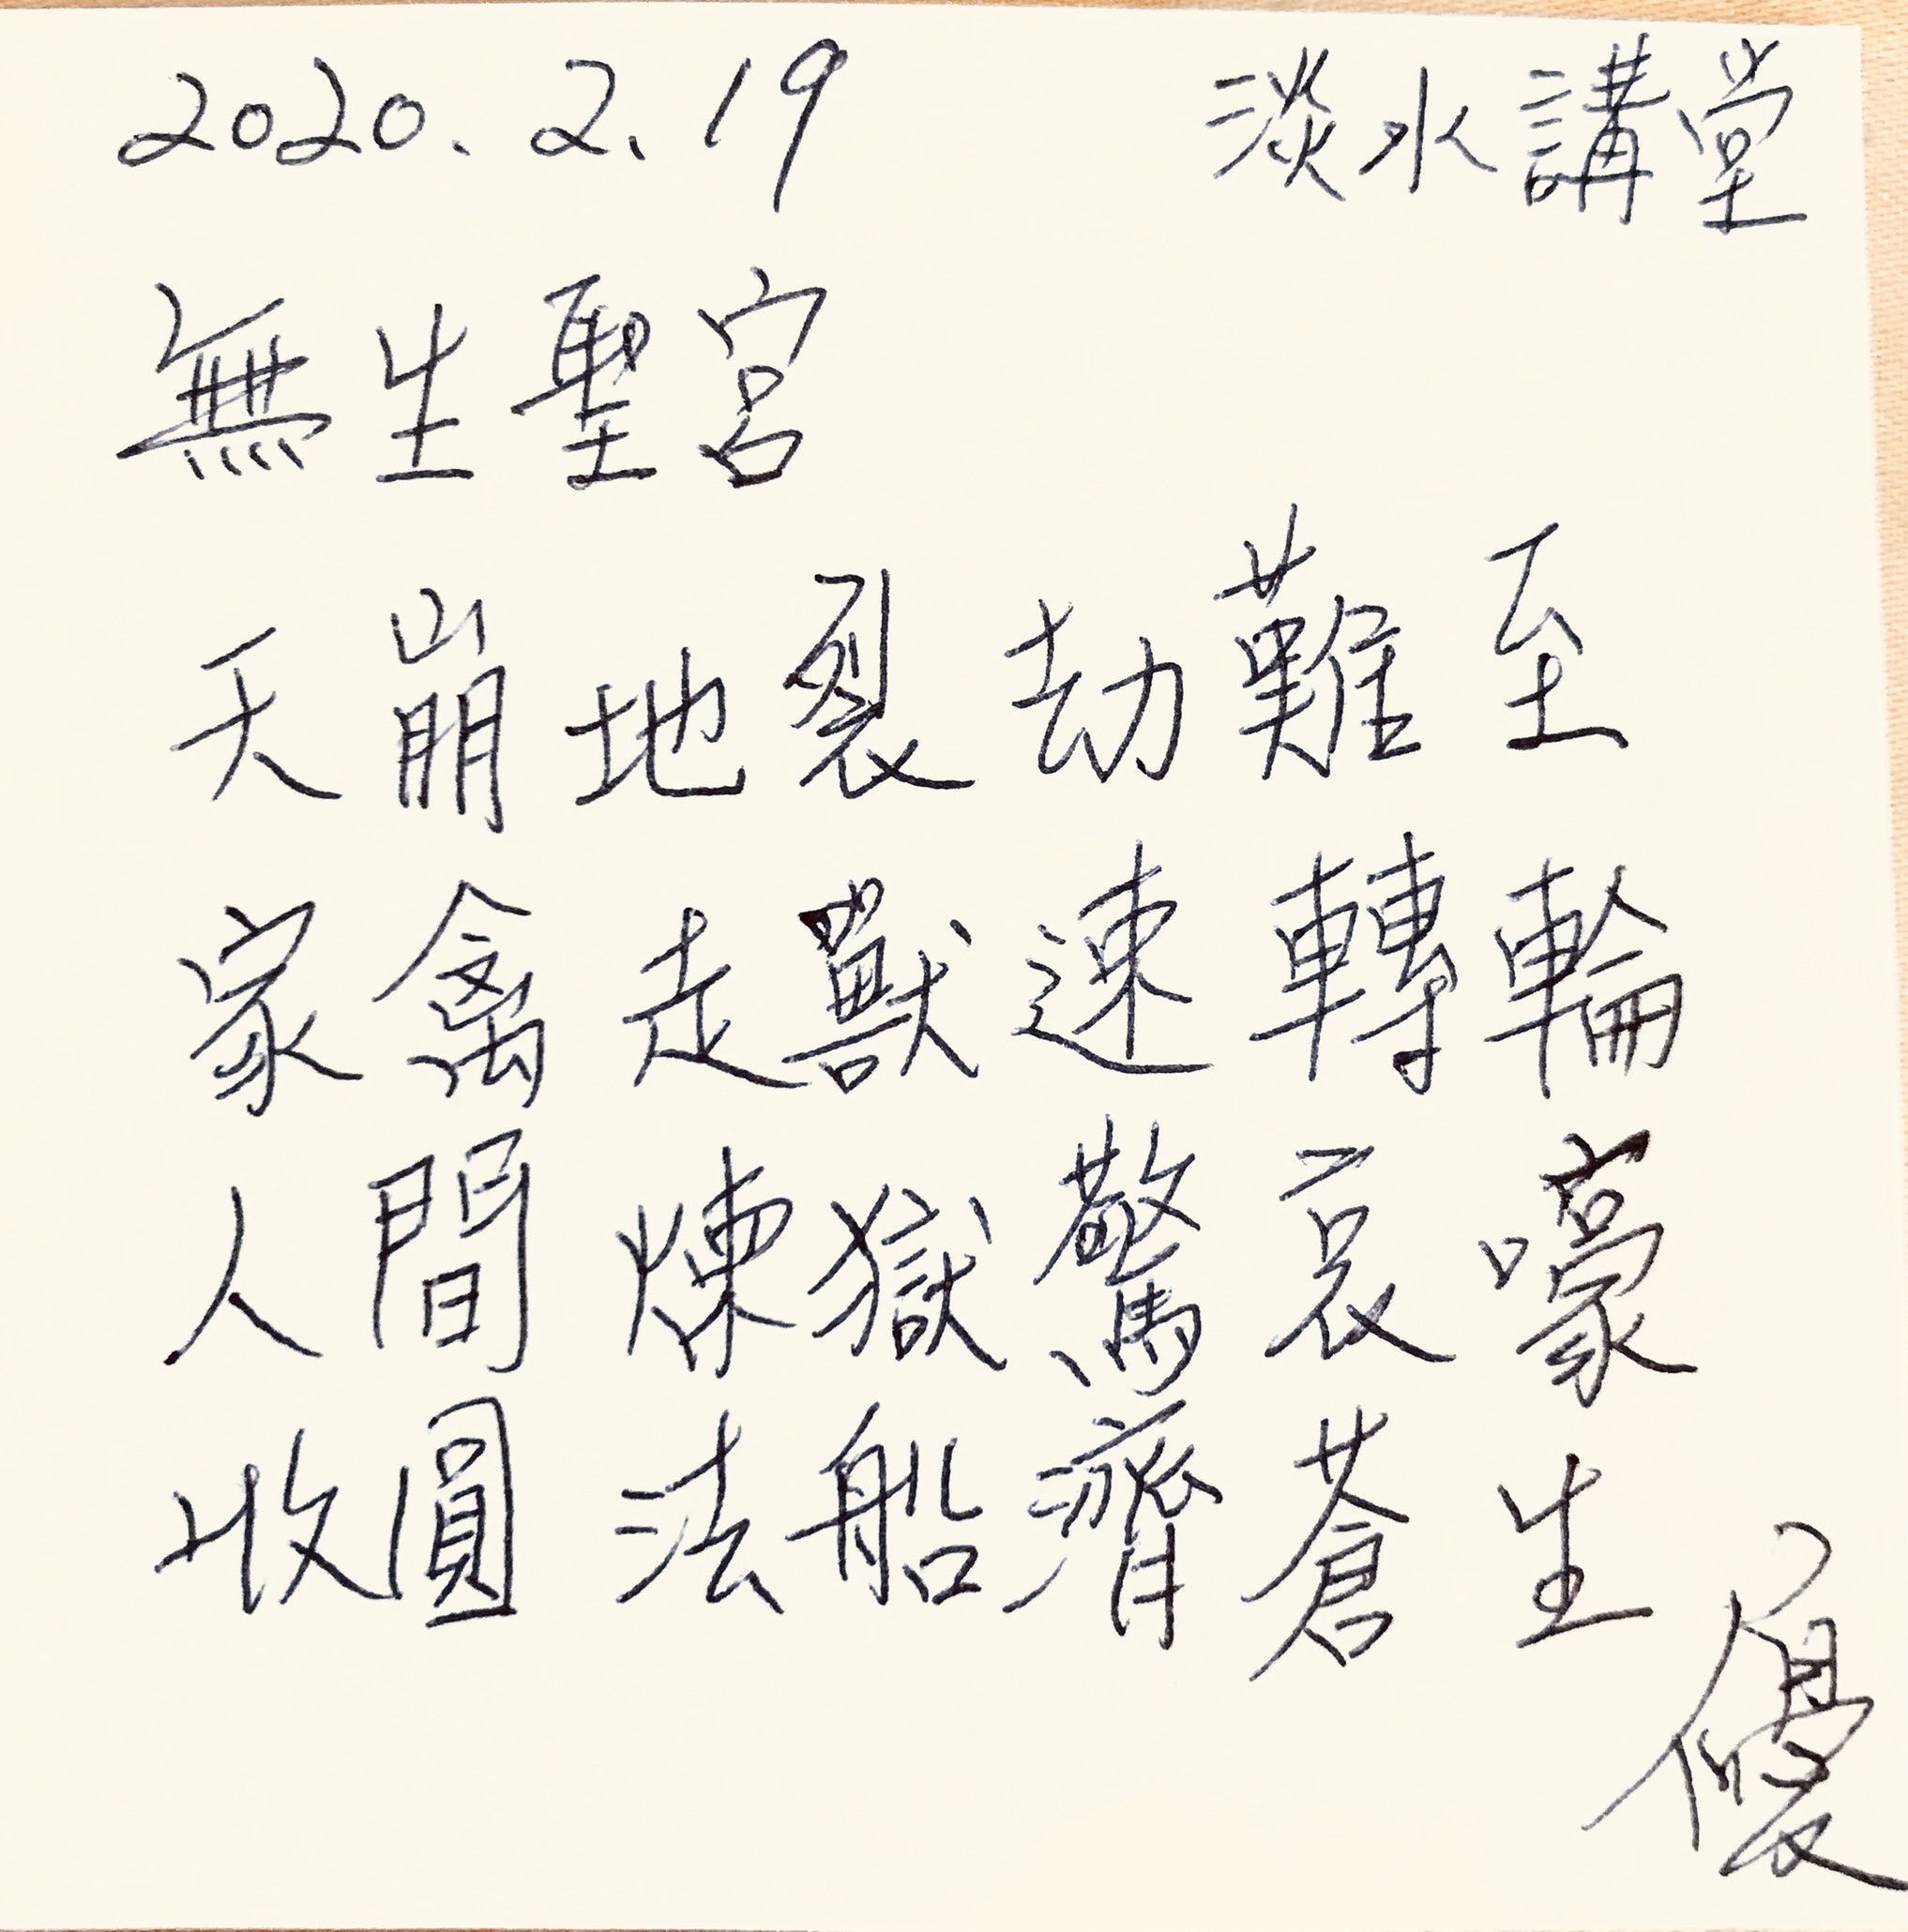 2020.2.19 淡水講堂
無生聖宮
天崩地裂劫難至
家禽走獸速轉輪
人間煉獄驚哀嚎
收圓法船濟蒼生
優